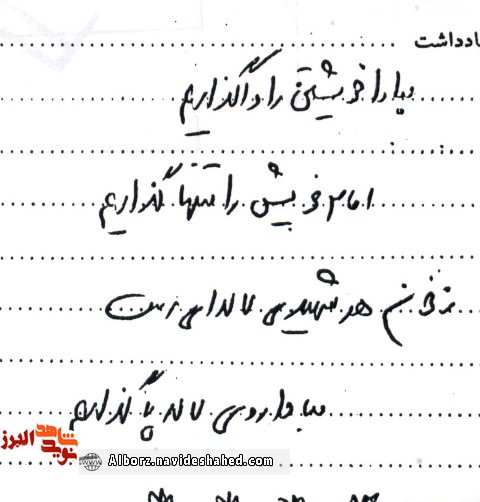 یادداشت
مبادا خویشتن را واگذاریم
امام خویش را تنها گذاریم
ز خون هر شهیدی لاله‌ای رست
مبادا روی لاله پا گذاریم
شاهد نوید البرز
Alborz.navideshahed.com